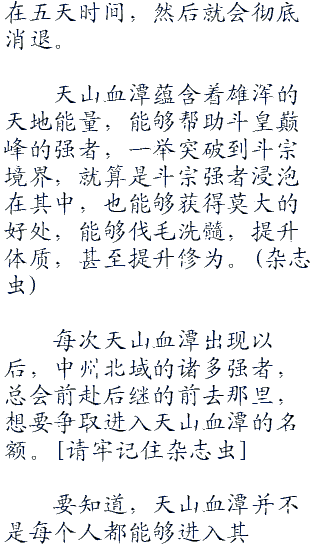 在五天时间，然后就会彻底
消退。
天山血潭蕴含着雄浑的
天地能量，能够帮助斗皇巅
峰的强者，一举突破到斗宗
境界，就算是斗宗强者浸泡
在其中，也能够获得莫大的
好处，能够伐毛洗髓，提升
体质，甚至提升修为。(杂志
虫)
每次天山血潭出现以
后，中州北域的诸多强者，
总会前赴后继的前去那里，
想要争取进入天山血潭的名
额。[请牢记住杂志虫]
要知道，天山血潭并不
是每个人都能够进入其